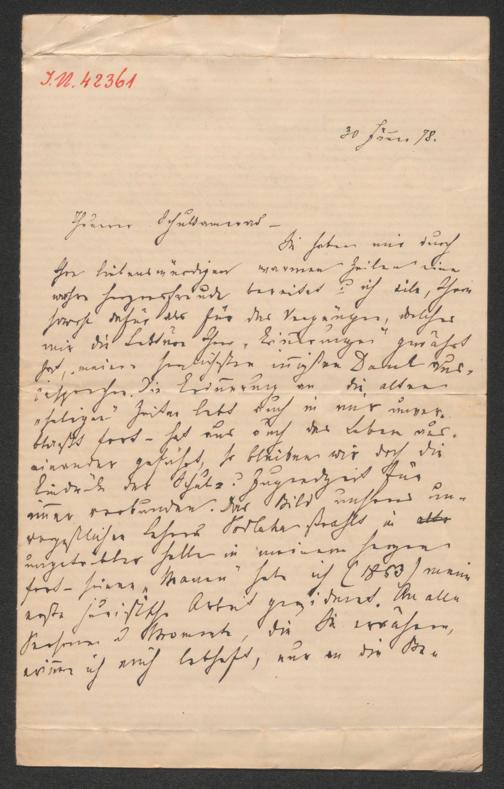 I.N. 42361
30 Jänner 78.
Theurer Schulkamerad –
Sie haben mir durch
Ihre liebenswürdigen warmen Zeilen eine
wahre Herzensfreude bereitet u ich eile, Ihnen
sowohl dafür als für das Vergnügen, welches
mir die Lektüre Ihrer „Erinnerungen“ gewährt
hat, meinen herzlichsten innigsten Dank aus-
zusprechen. Die Erinnerung an die alten
„seligen“ Zeiten lebt auch in mir unver-
blaßt fort – hat uns auch das Leben aus-
einander geführt, so bleiben wir doch die
Eindrücke der Schul- u Jugendzeit für
immer verbunden. Das Bild unseres un-
vergeßlichen Lehrers strahlt in
ungetrübter Helle in meinem Herzen
fort – seinen „Manen“ habe ich (1853) meine
erste juristische Arbeit gewidmet. An alle
Personen u Momente, die Sie erwähnen,
erinnere ich mich lebhaft, nur an die Be-